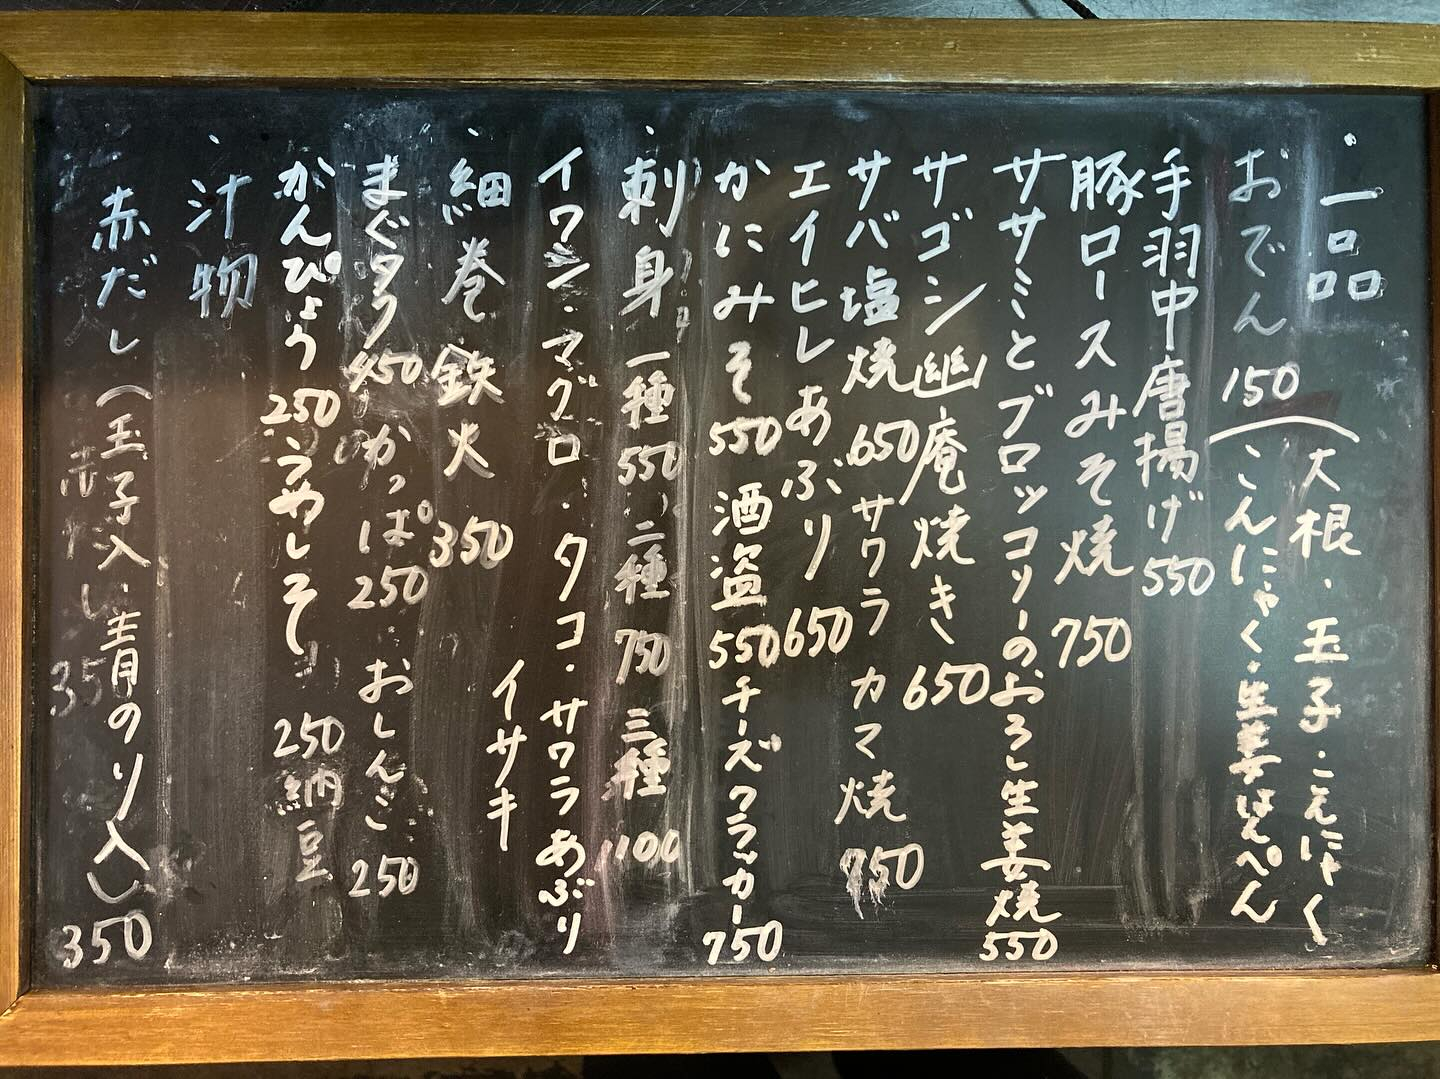 ・一品
おでん 150 (大根・玉子・こんにゃく
こんにゃく・生姜はんぺん
手羽中唐揚げ 550
豚ロースみそ焼 750
ササミとブロッコリーのおろし生姜焼 550
サゴシ幽庵焼き 650
サバ塩焼 650 サワラカマ焼 750
エイヒレあぶり 650
かにみそ 550 酒盗 550 チーズクラッカー 750
・刺身 一種 550 二種 750 三種 1100
イワシ・マグロ・タコ・サワラあぶり
イサキ
・細巻 鉄火 350
まぐタク 450 かっぱ 250 おしんこ 250
かんぴょう 250 うめしそ 250 納豆
・汁物
赤だし(玉子入・青のり入) 350